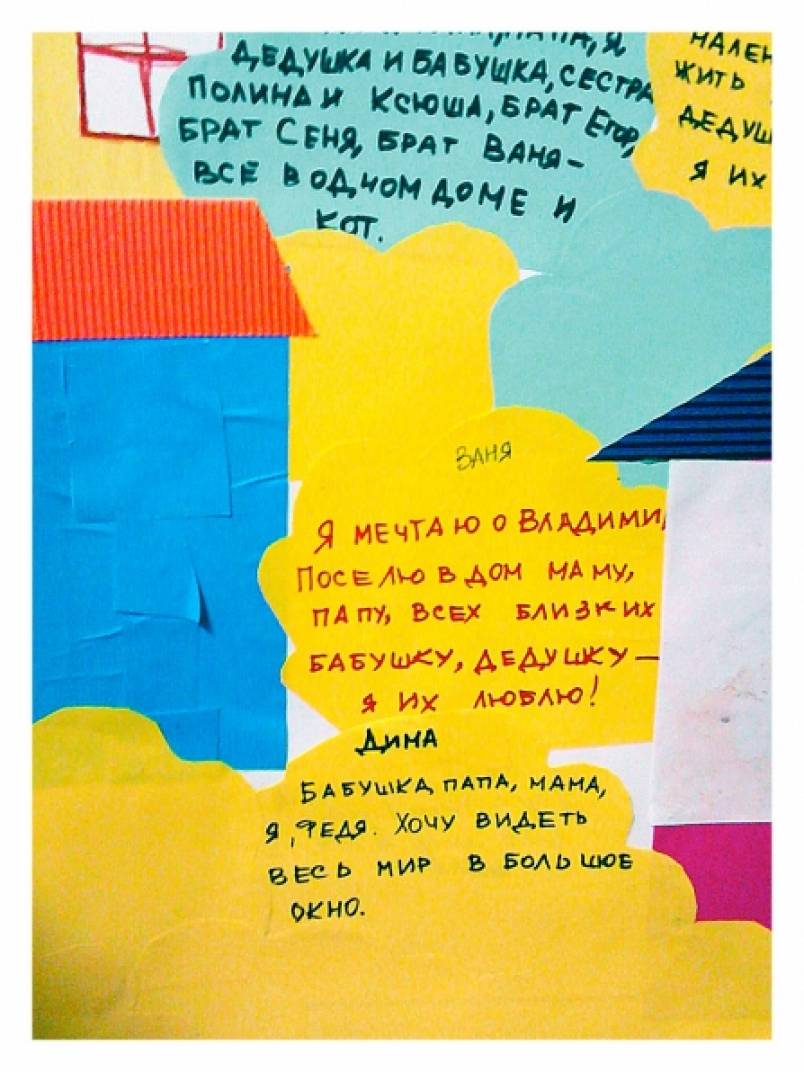 ПАПА, Я,
ДЕДУШКА И БАБУШКА, СЕСТРА
ПОЛИНА И КСЮША, БРАТ ЕГОР,
БРАТ СЕНЯ, БРАТ ВАНЯ –
ВСЕ В ОДНОМ ДОМЕ И
КОТ.
МАЛЕН
ЖИТЬ
ДЕДУШ
Я ИХ
ЗАНЯ
Я МЕЧТАЮ О ВЛАДИМИ
ПОСЕЛЮ В ДОМ МАМУ,
ПАПУ, ВСЕХ БЛИЗКИХ
БАБУШКУ, ДЕДУШКУ –
Я ИХ ЛЮБЛЮ!
ДИМА
БАБУШКА, ПАПА, МАМА,
Я, ФЕДЯ. ХОЧУ ВИДЕТЬ
ВЕСЬ МИР В БОЛЬШОЕ
ОКНО.